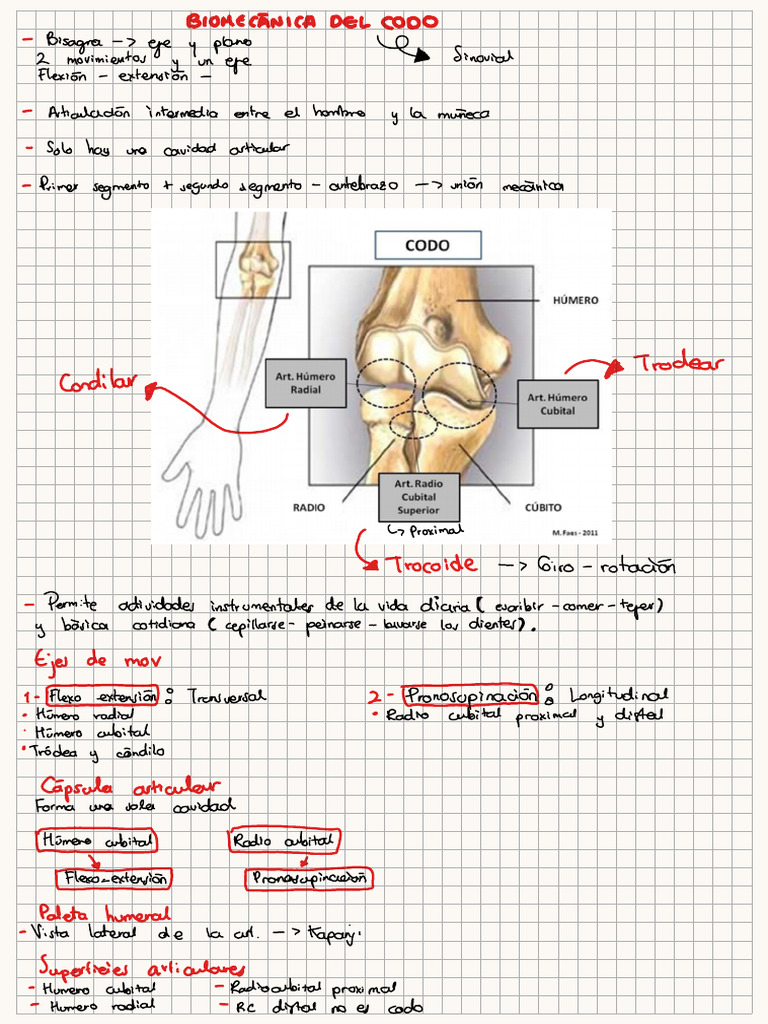 BIOMECÁNICA DEL CODO
- Bisagra -> eje y plano
Sinovial
2 movimientos y un eje
Flexión - extensión -
- Articulación intermedia entre el hombro y la muñeca
- Solo hay una cavidad articular
- Primer segmento + segundo segmento - antebrazo -> unión mecánica
CODO
HÚMERO
Condilar
Art. Húmero Radial
Art. Húmero Cubital
Troclear
RADIO
Art. Radio Cubital Superior
CÚBITO
↳ Proximal
M. Faes - 2011
Trocoide -> Giro - rotación
- Permite actividades instrumentales de la vida diaria ( escribir - comer - tejer )
y básica cotidiana ( cepillarse - peinarse - lavarse los dientes ).
Ejes de mov
1- Flexo extensión : Transversal
• Húmero radial
• Húmero cubital
• Tróclea y cóndilo
2- Pronosupinación : Longitudinal
• Radio cubital proximal y distal
Cápsula articular
Forma una sola cavidad
Húmero cubital
Radio cubital
Flexo-extensión
Pronosupinación
Paleta humeral
- Vista lateral de la art. -> Kapanji
Superficies articulares
- Humero cubital
- Radiocubital proximal
- Humero radial
- RC distal no es codo